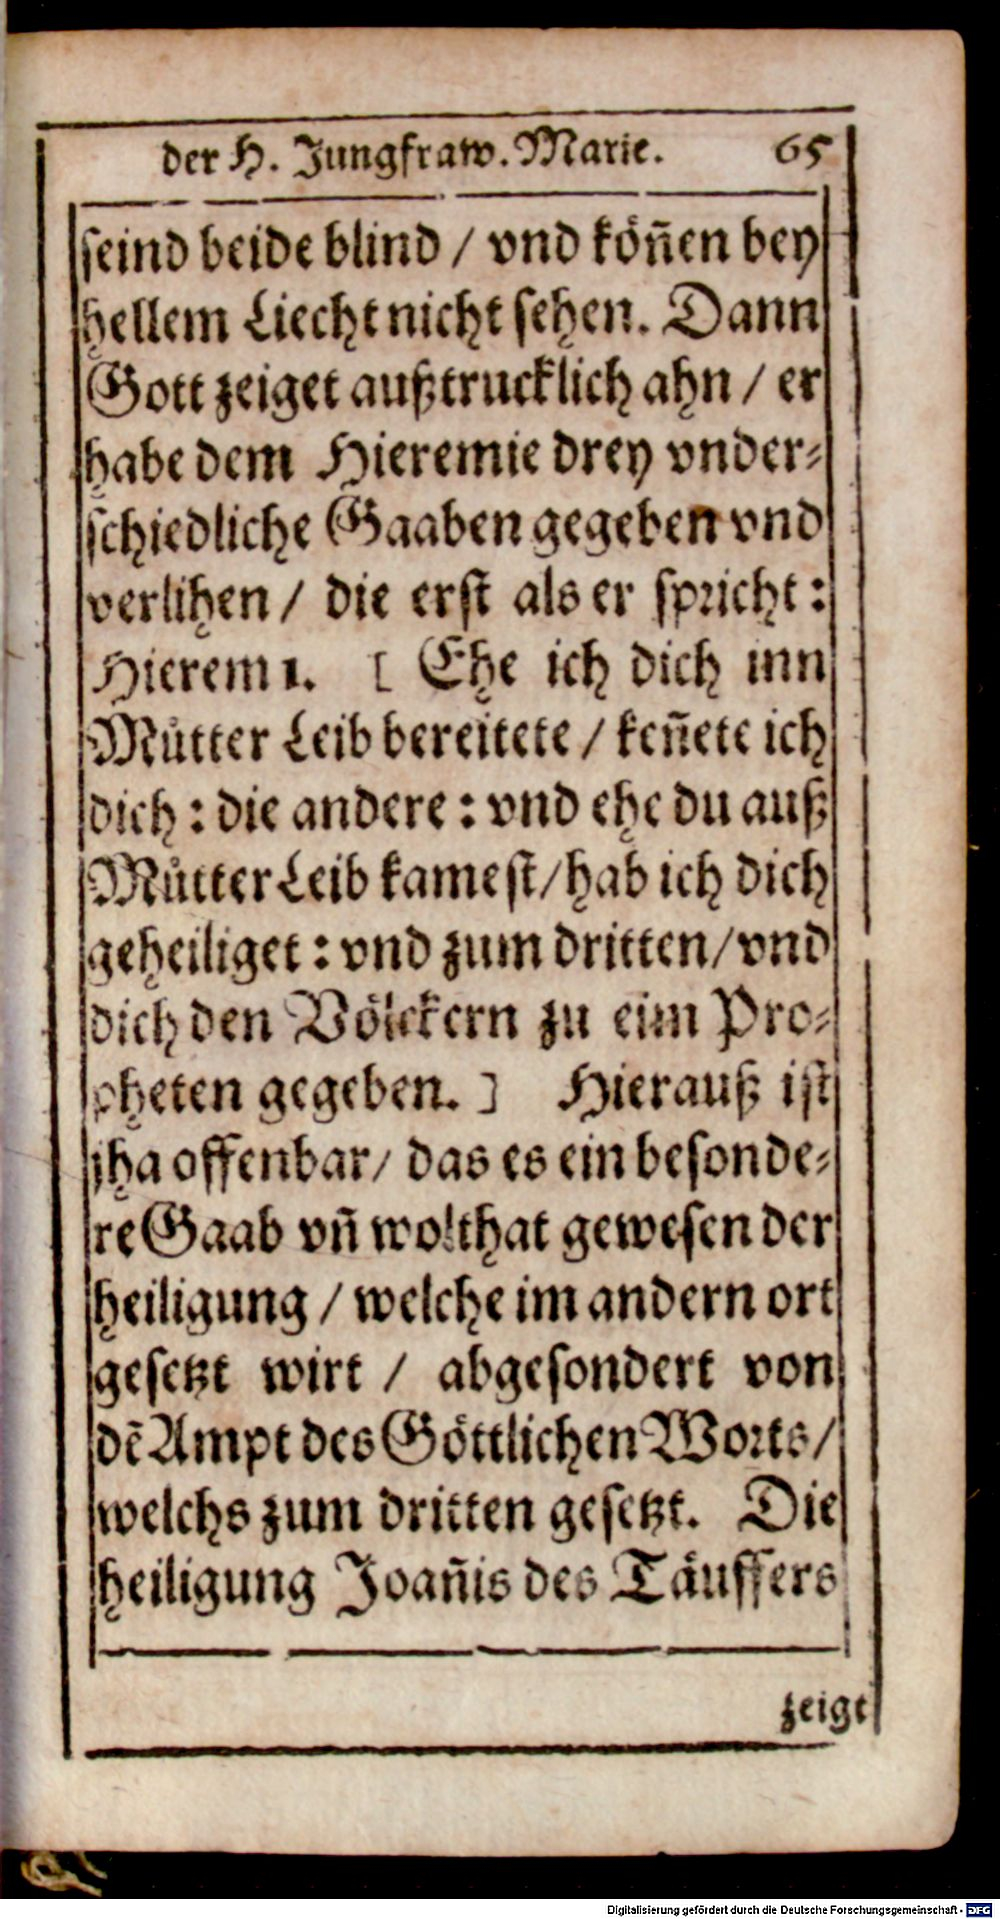 der H. Jungfraw. Marie. 65
seind beide blind / vnd köñen bey
hellem Liecht nicht sehen. Dann
Gott zeiget außtrucklich ahn / er
habe dem Hieremie drey vnder-
schiedliche Gaaben gegeben vnd
verlihen / die erst als er spricht:
Hierem 1. [ Ehe ich dich inn
Můtter Leib bereitete / keñete ich
dich: die andere: vnd ehe du auß
Můtter Leib kamest / hab ich dich
geheiliget: vnd zum dritten / vnd
dich den Völckern zu eim Pro-
pheten gegeben. ] Hierauß ist
jha offenbar / das es ein besonde-
re Gaab vñ wolthat gewesen der
heiligung / welche im andern ort
gesetzt wirt / abgesondert von
dē Ampt des Göttlichen Worts /
welchs zum dritten gesetzt. Die
heiligung Joañis des Täuffers
zeigt
Digitalisierung gefördert durch die Deutsche Forschungsgemeinschaft - DFG